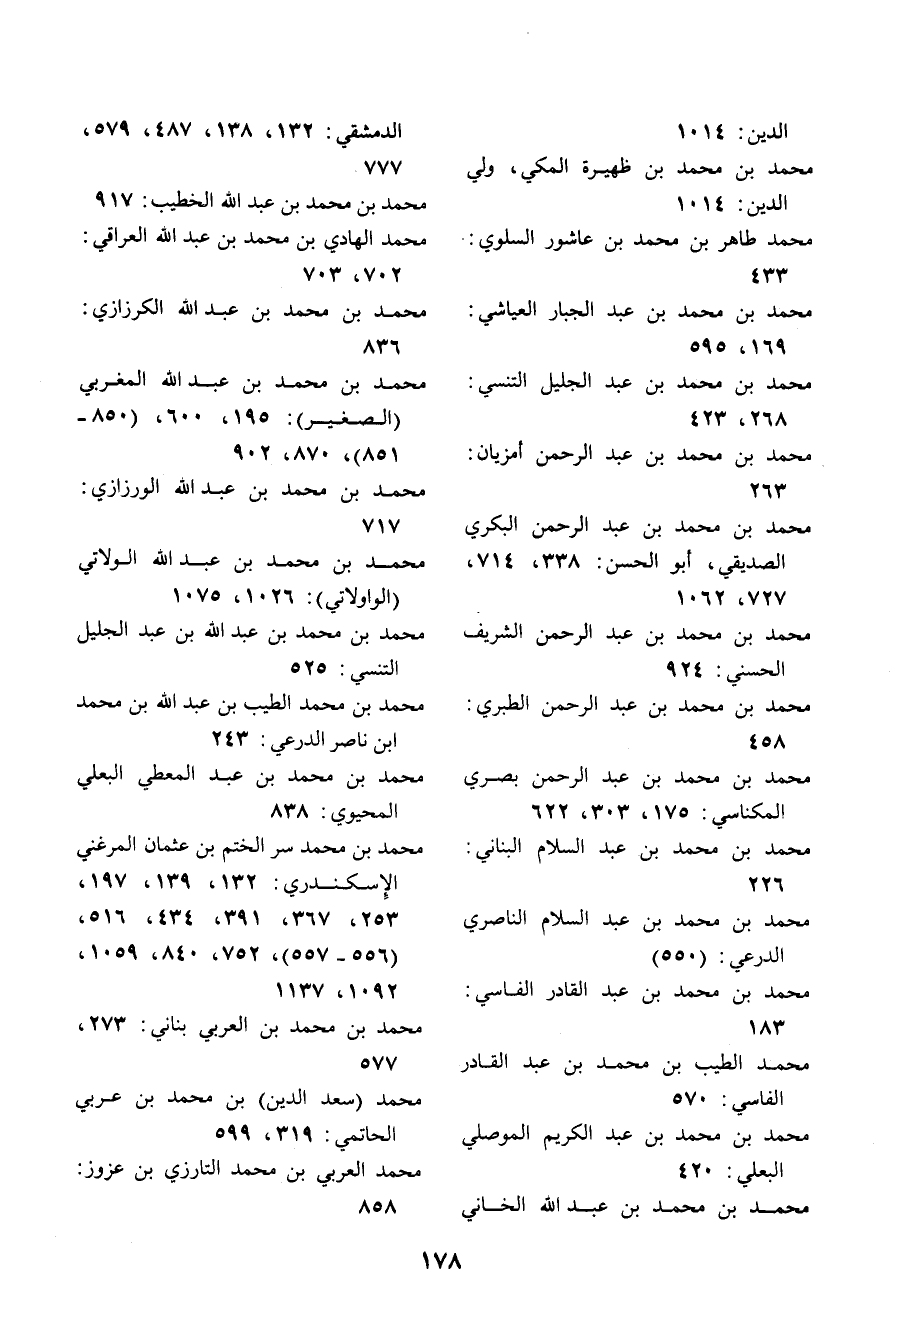 الدين: ١٠١٤
محمد بن محمد بن ظهيرة المكي، ولي
الدين: ١٠١٤
محمد طاهر بن محمد بن عاشور السلوي:
٤٣٣
محمد بن محمد بن عبد الجبار العياشي:
١٦٩، ٥٩٥
محمد بن محمد بن عبد الجليل التنسي:
٢٦٨، ٤٢٣
محمد بن محمد بن عبد الرحمن أمزيان:
٢٦٣
محمد بن محمد بن عبد الرحمن البكري
الصديقي، أبو الحسن: ٣٣٨، ٧١٤،
٧٢٧، ١٠٦٢
محمد بن محمد بن عبد الرحمن الشريف
الحسني: ٩٢٤
محمد بن محمد بن عبد الرحمن الطبري:
٤٥٨
محمد بن محمد بن عبد الرحمن بصري
المكناسي: ١٧٥، ٣٠٣، ٦٢٢
محمد بن محمد بن عبد السلام البناني:
٢٢٦
محمد بن محمد بن عبد السلام الناصري
الدرعي: (٥٥٠)
محمد بن محمد بن عبد القادر الفاسي:
١٨٣
محمد الطيب بن محمد بن عبد القادر
الفاسي: ٥٧٠
محمد بن محمد بن عبد الكريم الموصلي
البعلي: ٤٢٠
محمد بن محمد بن عبد الله الخاني
الدمشقي: ١٣٢، ١٣٨، ٤٨٧، ٥٧٩،
٧٧٧
محمد بن محمد بن عبد الله الخطيب: ٩١٧
محمد الهادي بن محمد بن عبد الله العراقي:
٧٠٢، ٧٠٣
محمد بن محمد بن عبد الله الكرزازي:
٨٣٦
محمد بن محمد بن عبد الله المغربي
(الصغير): ١٩٥، ٦٠٠، (٨٥٠-
٨٥١)، ٨٧٠، ٩٠٢
محمد بن محمد بن عبد الله الورزازي:
٧١٧
محمد بن محمد بن عبد الله الولاتي
(الواولاتي): ١٠٢٦، ١٠٧٥
محمد بن محمد بن عبد الله بن عبد الجليل
التنسي: ٥٢٥
محمد بن محمد الطيب بن عبد الله بن محمد
ابن ناصر الدرعي: ٢٤٣
محمد بن محمد بن عبد المعطي البعلي
المحيوي: ٨٣٨
محمد بن محمد سر الختم بن عثمان المرغني
الإسكندري: ١٣٢، ١٣٩، ١٩٧،
٢٥٣، ٣٦٧، ٣٩١، ٤٣٤، ٥١٦،
(٥٥٦-٥٥٧)، ٧٥٢، ٨٤٠، ١٠٥٩،
١٠٩٢، ١١٣٧
محمد بن محمد بن العربي بناني: ٢٧٣،
٥٧٧
محمد (سعد الدين) بن محمد بن عربي
الحاتمي: ٣١٩، ٥٩٩
محمد العربي بن محمد التارزي بن عزوز:
٨٥٨
١٧٨